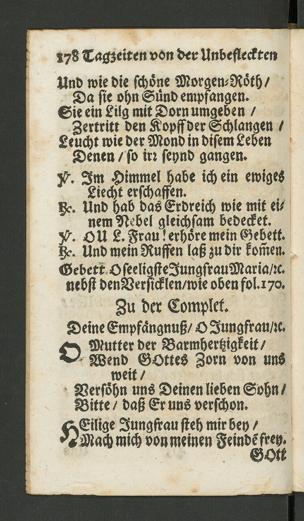 178 Tagzeiten von der Unbefleckten
Und wie die schöne Morgen-Röth /
Da sie ohn Sünd empfangen.
Sie ein Lilg mit Dorn umgeben /
Zertritt den Kopff der Schlangen /
Leucht wie der Mond in disem Leben
Denen / so irr seynd gangen.
℣. Im Himmel habe ich ein ewiges
Liecht erschaffen.
℟. Und hab das Erdreich wie mit ei-
nem Nebel gleichsam bedecket.
℣. OU L. Frau! erhöre mein Gebett.
℟. Und mein Ruffen laß zu dir kom̃en.
Gebett. O seeligste Jungfrau Maria / ꝛc.
nebst den Versicklen / wie oben fol. 170.
Zu der Complet.
Deine Empfängnuß / O Jungfrau / ꝛc.
O Mutter der Barmhertzigkeit /
Wend GOttes Zorn von uns
weit /
Versöhn uns Deinen lieben Sohn /
Bitte / daß Er uns verschon.
HEilige Jungfrau steh mir bey /
Mach mich von meinen Feindẽ frey.
GOtt